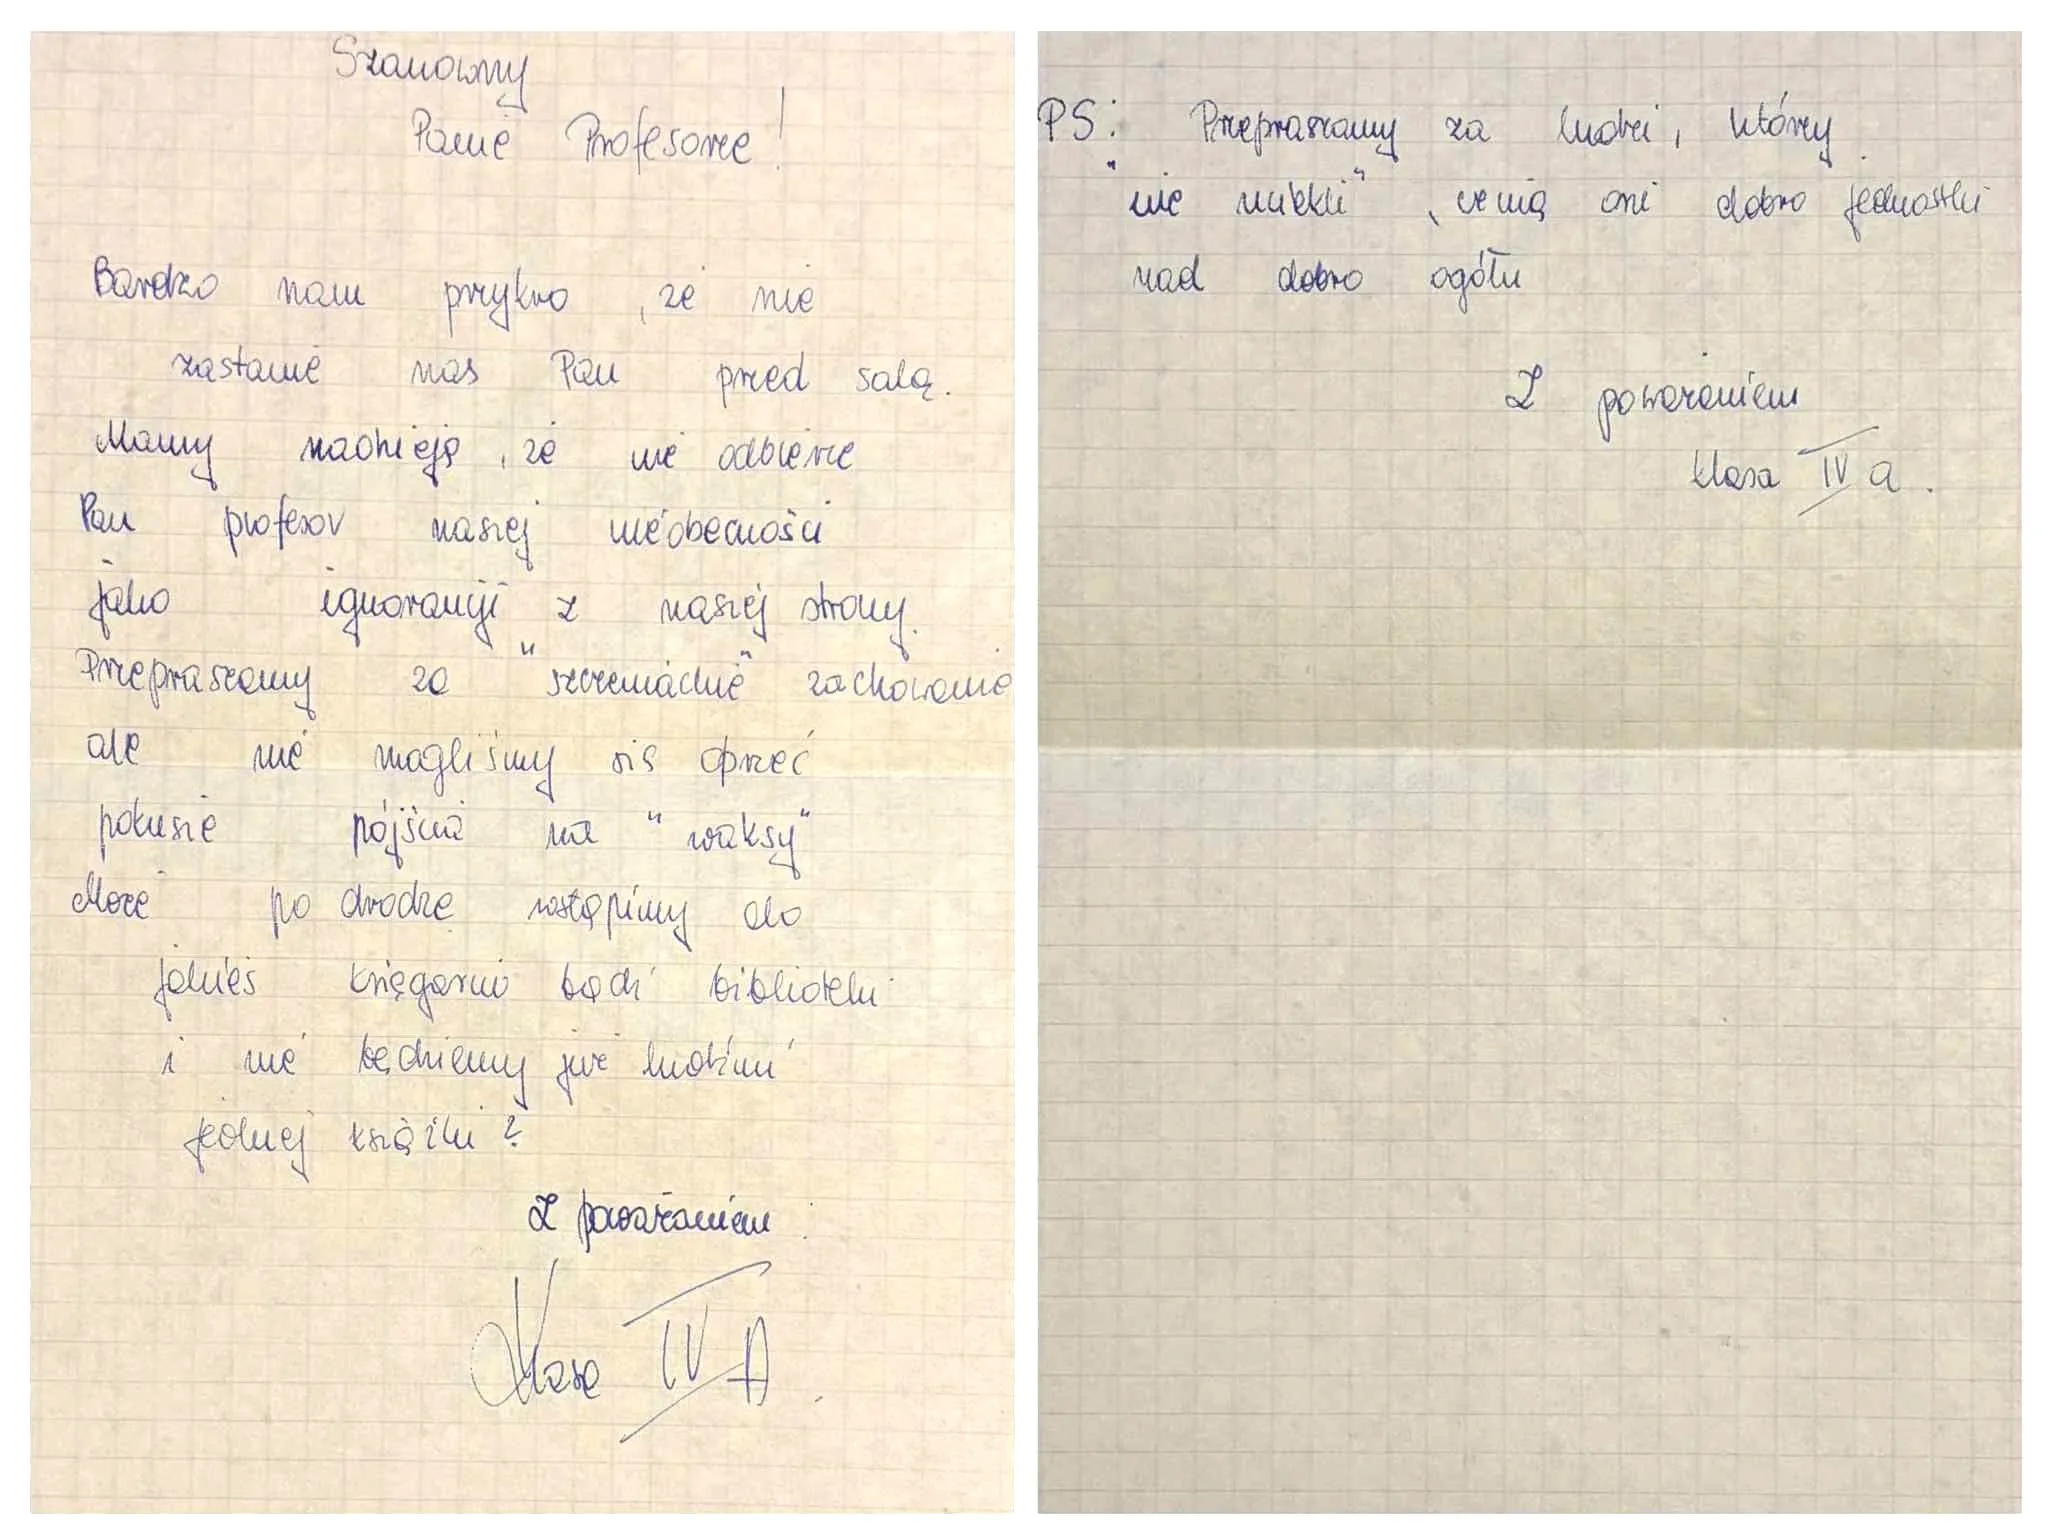 Szanowny
Panie Profesorze!
Bardzo nam przykro, że nie
zastanie nas Pan przed salą.
Mamy nadzieję, że nie odbierze
Pan profesor naszej nieobecności
jako ignorancji z naszej strony.
Przepraszamy za "szczeniackie" zachowanie
ale nie mogliśmy się oprzeć
pokusie pójścia na "waksy"
Może po drodze wstąpimy do
jakieś księgarni bądź biblioteki
i nie będziemy już ludźmi
jednej książki?
Z poważaniem:
Klasa IV A.
PS: Przepraszamy za ludzi, którzy
"nie uciekli", cenią oni dobro jednostki
nad dobro ogółu
Z poważaniem
klasa IV a.